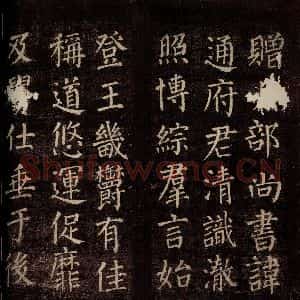 贈部尚書諱
通府君清識澈
照博綜羣言始
登王畿欝有佳
稱道悠運促靡
及仕垂于後
Shufawang.CN